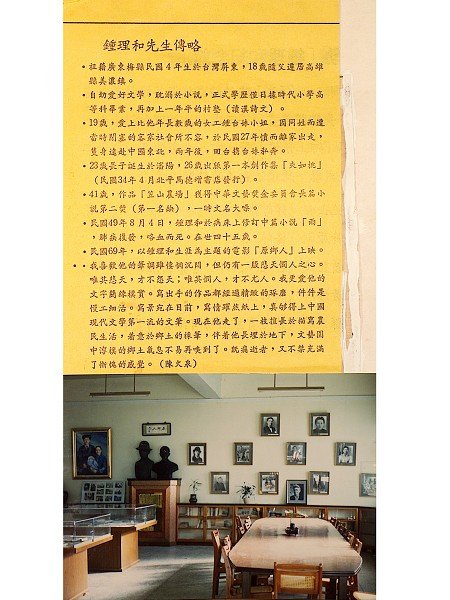 鍾理和先生傳略
•祖籍廣東梅縣民國4年生於台灣屏東，18歲隨父遷居高雄
縣美濃鎮。
•自幼愛好文學，耽溺於小說，正式學歷僅日據時代小學高
等科畢業，再加上一年半的村塾（讀漢詩文）。
•19歲，愛上比他年長數歲的女工鍾台妹小姐，因同姓而遭
當時閉塞的客家社會所不容，於民國27年憤而離家出走，
隻身遠赴中國東北，兩年後，回台携台妹私奔。
•23歲長子誕生於瀋陽，26歲出版第一本創作集「夾竹桃」
（民國34年4月北平馬德增書店發行）。
•41歲，作品「笠山農場」獲得中華文藝獎金委員會長篇小
說第二獎（第一名缺），一時文名大噪。
•民國49年8月4日，鍾理和於病床上修訂中篇小說「雨」
，肺病復發，咯血而死。在世四十五歲。
•民國69年，以鍾理和生涯為主題的電影『原鄉人』上映。
••我喜歡他的筆調雖徐徊沉悶，但仍有一股悲天憫人之心。
唯其悲天，才不怨天；唯其憫人，才不尤人。我更愛他的
文字簡練樸實。寫出手的作品都經過精緻的琢磨，件件是
慢工細活。寫景宛在目前，寫情躍然紙上，真够得上中國
現代文學第一流的文筆。現在他走了，一枝擅長於描寫農
民生活，着意於鄉土的綵筆，伴着他長埋於地下，文藝園
中淳樸的鄉土氣息不易再嗅到了。既痛逝者，又不禁充滿
了惋惜的感覺。（陳火泉）